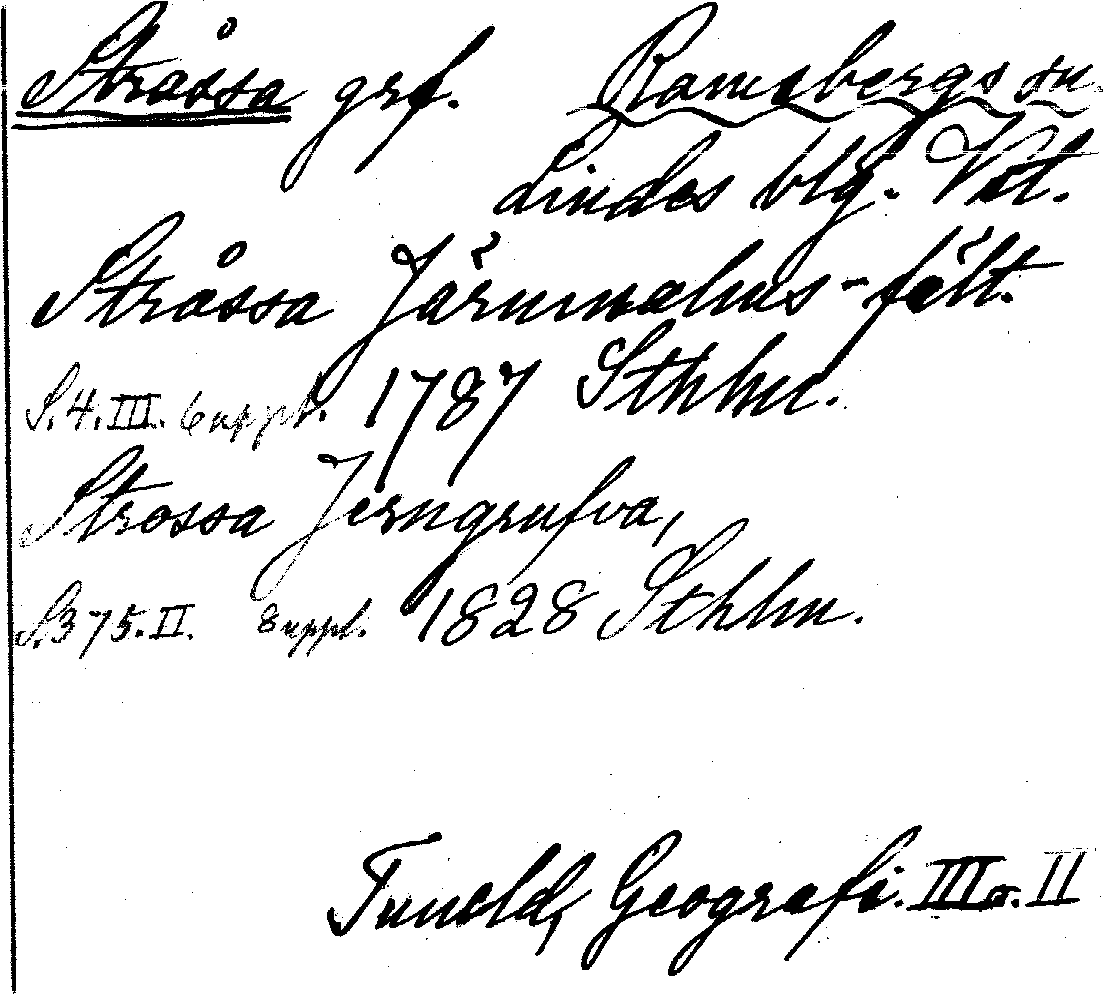 Stråssa grf. Ramsbergs sn.
Lindes blg. Vstl.
Stråssa Järnmalms-fält.
S. 4. III. 6 uppl. 1787 Sthlm.
Strossa Jerngrufva,
S. 375. II. 8 uppl. 1828 Sthlm.
Tuneld, Geografi. III o. II